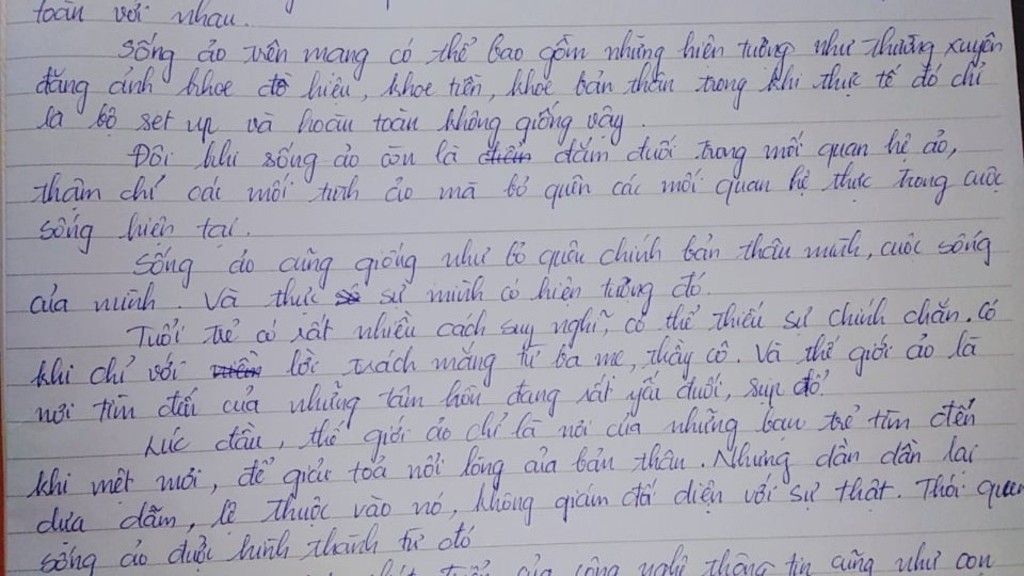 toàn với nhau.
Sống ảo trên mạng có thể bao gồm những hiện tượng như thường xuyên
đăng ảnh khoe đồ hiệu, khoe tiền, khoe bản thân trong khi thực tế đó chỉ
là bộ set up và hoàn toàn không giống vậy.
Đôi khi sống ảo còn là đắm đuối trong mối quan hệ ảo,
thậm chí các mối tình ảo mà bỏ quên các mối quan hệ thực trong cuộc
sống hiện tại.
Sống ảo cũng giống như bỏ quên chính bản thân mình, cuộc sống
của mình. Và thực sự mình có hiện tượng đó.
Tuổi trẻ có rất nhiều cách suy nghĩ, có thể thiếu sự chính chắn. Có
khi chỉ với lời trách mắng từ ba mẹ, thầy cô. Và thế giới ảo là
nơi tìm đến của những tâm hồn đang rất yếu đuối, sụp đổ.
Lúc đầu, thế giới ảo chỉ là nơi của những bạn trẻ tìm đến
khi mệt mỏi, để giải toả nỗi lòng của bản thân. Nhưng dần dần lại
dựa dẫm, lệ thuộc vào nó, không giám đối diện với sự thật. Thói quen
sống ảo được hình thành từ đó
phát triển của công nghệ thông tin cũng như con